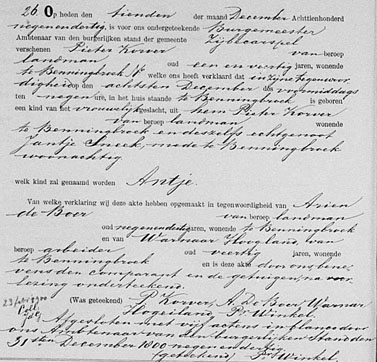 26 Op heden den tienden der maand December Achttienhonderd
negenendertig, is voor ons ondergeteekende Burgemeester
Ambtenaar van den burgerlijken stand der gemeente Sijbekarspel
verschenen Pieter Korver van beroep
landman oud een en vertig jaren, wonende
te Benningbroek welke ons heeft verklaard dat in zijne tegenwoor
digheid op den achtsten December des voormiddags
ten negen ure, in het huis staande te Benningbroek is geboren
een kind van het vrouwelijk geslacht, uit hem Pieter Korver
van beroep landman wonende
te Benningbroek en deszelfs echtgenoot
Jantje Sneek, mede te Benningbroek
woonachtig
welk kind zal genaamd worden Antje.
Van welke verklaring wij deze akte hebben opgemaakt in tegenwoordigheid van Arien
de Boer van beroep landman
oud negenendertig jaren, wonende te Benningbroek
en van Warnaar Hoogland, van
beroep arbeider oud veertig jaren, wonende
te Benningbroek en is deze akte door ons bene
vens den comparant en de getuigen, na voor
lezing onderteekend.
(Was geteekend) P. Korver, A. De Boer, Warnar
Hogeiland, Pr Winkel.
Afgesloten met vijf actens in blanco door
ons Ambtenaar van den burgerlijken Stand den
31sten December 1800 negenendertig
(geteekend) Pr Winkel.